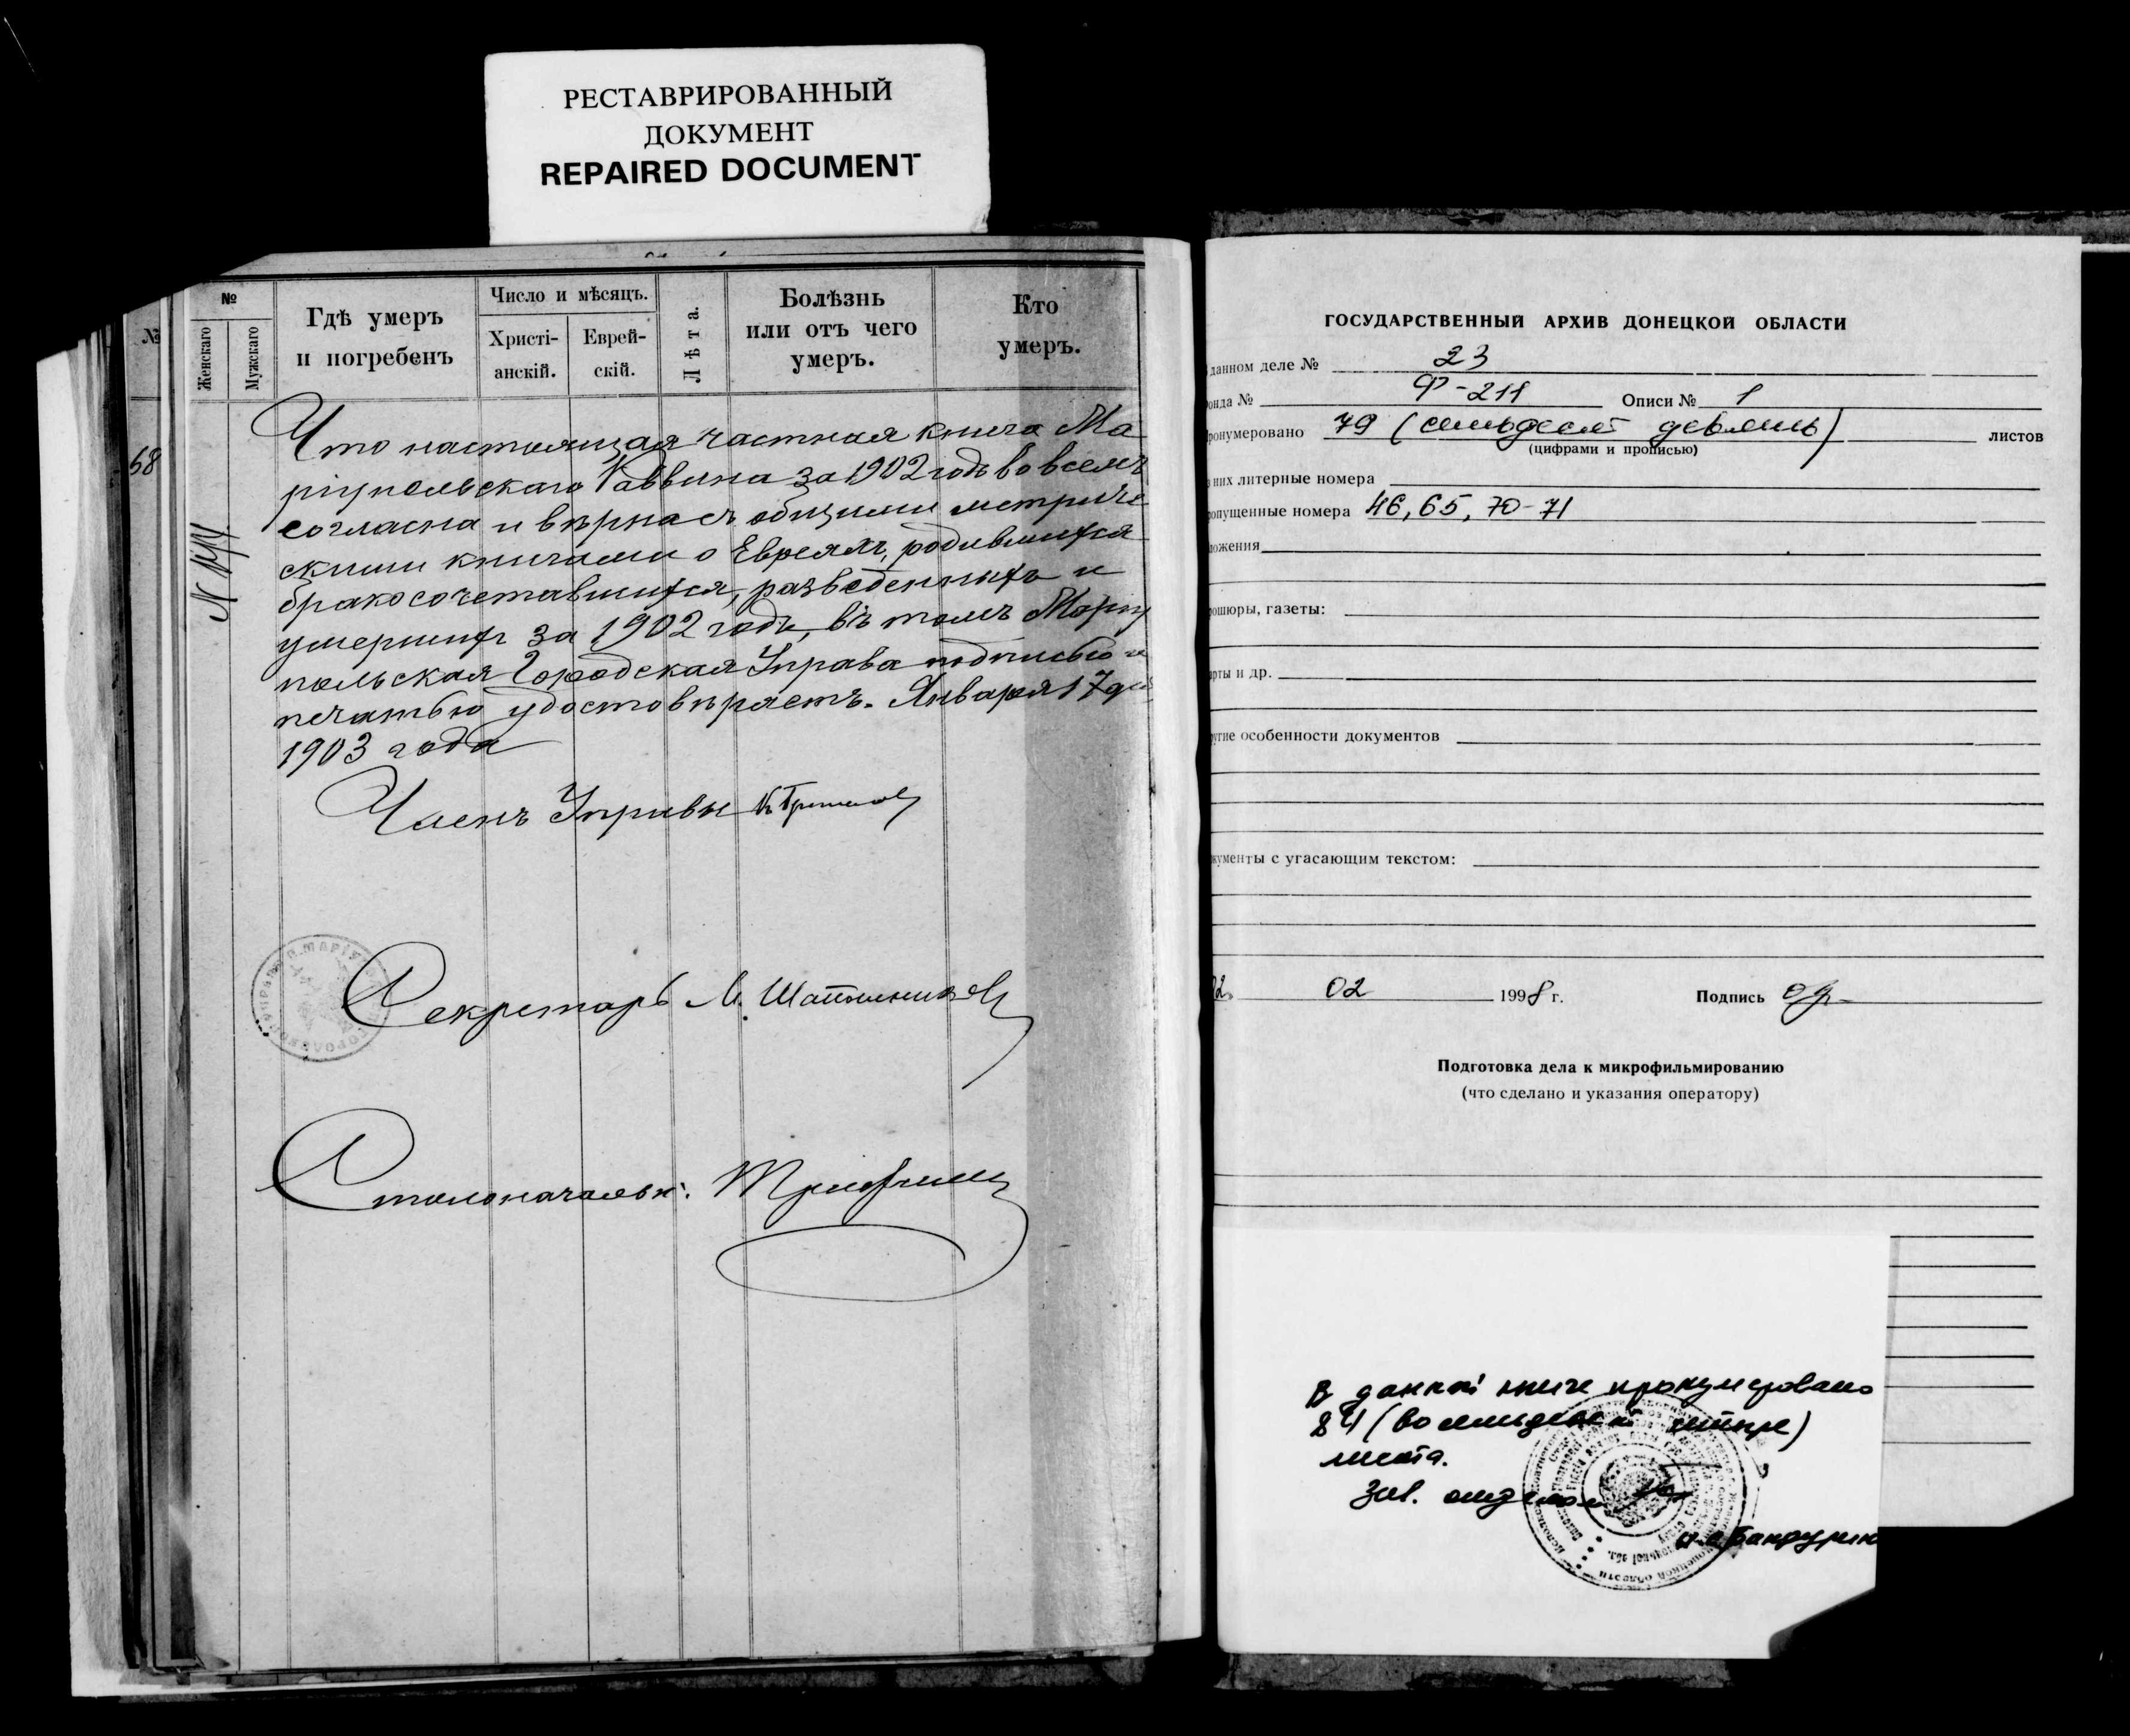 РЕСТАВРИРОВАННЫЙ
ДОКУМЕНТ
REPAIRED DOCUMENT
№
68
№
Женскаго
Мужскаго
Гдѣ умеръ
и погребенъ
Число и мѣсяцъ.
Христі-
анскій.
Еврей-
скій.
Лѣта.
Болѣзнь
или отъ чего
умеръ.
Кто
умеръ.
Что настоящая частная книга Ма
ріупольскаго Раввина за 1902 годъ во всемъ
согласна и вѣрна съ общими метриче
скими книгами о Евреяхъ, родившихся
бракосочетавшихся, разведенныхъ и
умершихъ за 1902 годъ, въ томъ Маріу
польская Городская Управа подписью и
печатью удостовѣряетъ. Января 17 дня
1903 года
Членъ Управы
Секретарь
Столоначальн:
ГОСУДАРСТВЕННЫЙ АРХИВ ДОНЕЦКОЙ ОБЛАСТИ
данном деле № 23
онда № Ф-211 Описи № 1
ронумеровано 79 (семьдесят девять) листов
(цифрами и прописью)
них литерные номера
опущенные номера 46, 65, 70-71
ложения
ошюры, газеты:
рты и др.
угие особенности документов
кументы с угасающим текстом:
02 1998 г. Подпись
Подготовка дела к микрофильмированию
(что сделано и указания оператору)
В данной книге пронумеровано
84 (восемьдесят четыре)
листа.
Зав. отделом